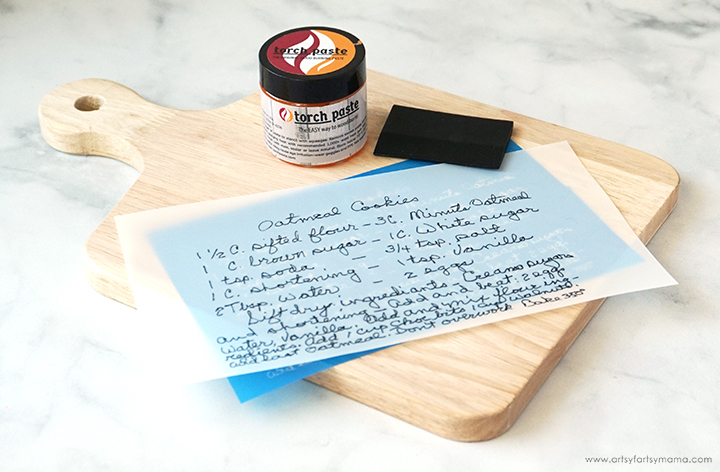 torch paste
torch paste
the EASY way to
Oatmeal Cookies
1 1/2 C. sifted flour - 3 C. Minute Oatmeal
1 C. brown sugar - 1 C. White sugar
1 tsp. soda - 3/4 tsp. salt
1 C. shortening - 1 tsp. Vanilla
2 Tbsp. Water - 2 eggs
Sift dry ingredients - Cream sugars
and shortening - add and beat: 2 eggs
Water, Vanilla. Add and mix flour in-
redients. Add 1 cup choc bits, 1 cup walnuts.
add last oatmeal. Dont overwork Bake 350°
www.artsyfartsymama.com